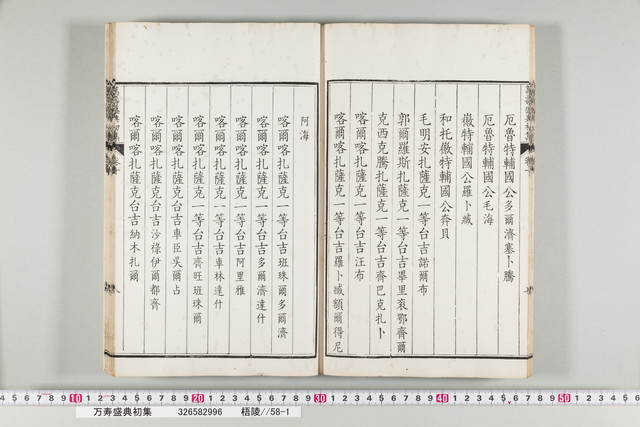 厄魯特輔國公多爾濟塞卜騰
厄魯特輔國公毛海
徽特輔國公羅卜臧
和托徽特輔國公奔貝
毛明安扎薩克一等台吉諾爾布
郭爾羅斯扎薩克一等台吉畢里衮鄂齊爾
克西克騰扎薩克一等台吉齊巴克扎卜
喀爾喀扎薩克一等台吉汪布
喀爾喀扎薩克一等台吉羅卜臧額爾得尼
阿海
喀爾喀扎薩克一等台吉班珠爾多爾濟
喀爾喀扎薩克一等台吉多爾濟達什
喀爾喀扎薩克一等台吉阿里雅
喀爾喀扎薩克一等台吉車林達什
喀爾喀扎薩克一等台吉齊旺班珠爾
喀爾喀扎薩克台吉車臣吳爾占
喀爾喀扎薩克台吉沙祿伊爾都齊
喀爾喀扎薩克台吉納木扎爾
万寿盛典初集 326582996 梧陵//58-1